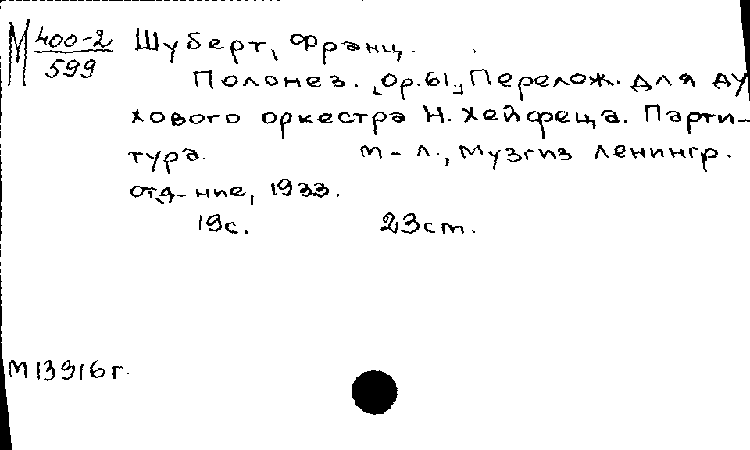 М 400-2 Шуберт, Франц.
599
Полонез. „Ор.61„ Перелож. для ду
хового оркестра Н. Хейфеца. Парти-
тура. М-Л., Музгиз Ленингр.
отд-ние, 1933.
19с. 23см.
М13916г.